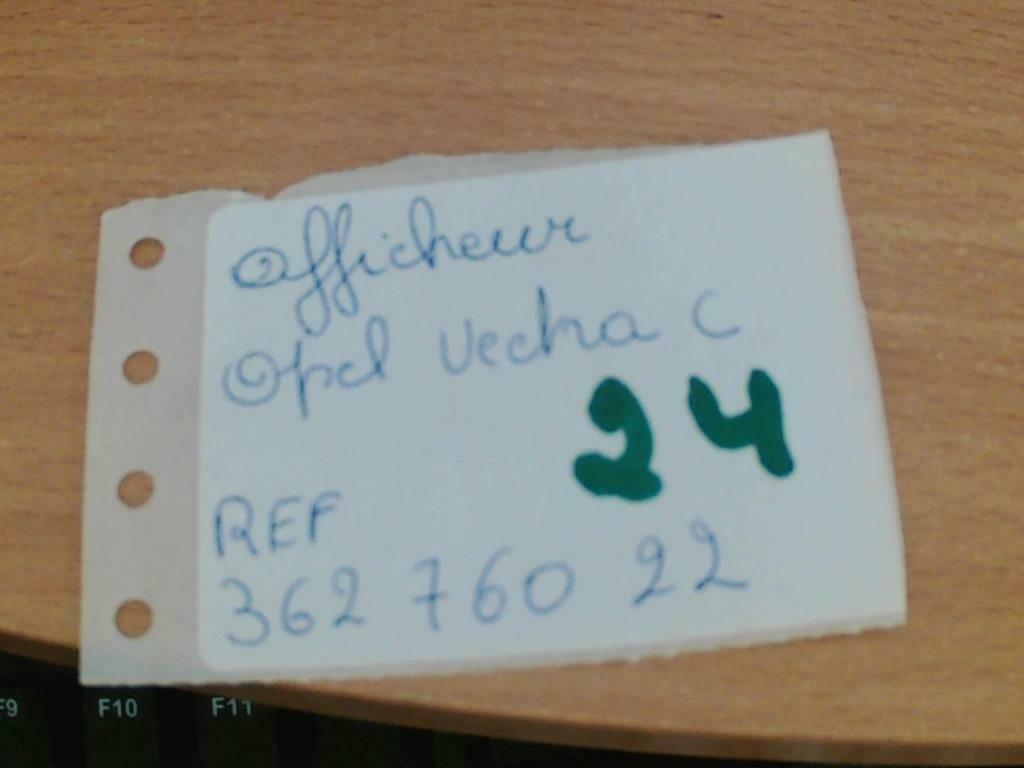 Afficheur
Opel Vectra C
24
REF
362 760 22
F9 F10 F11